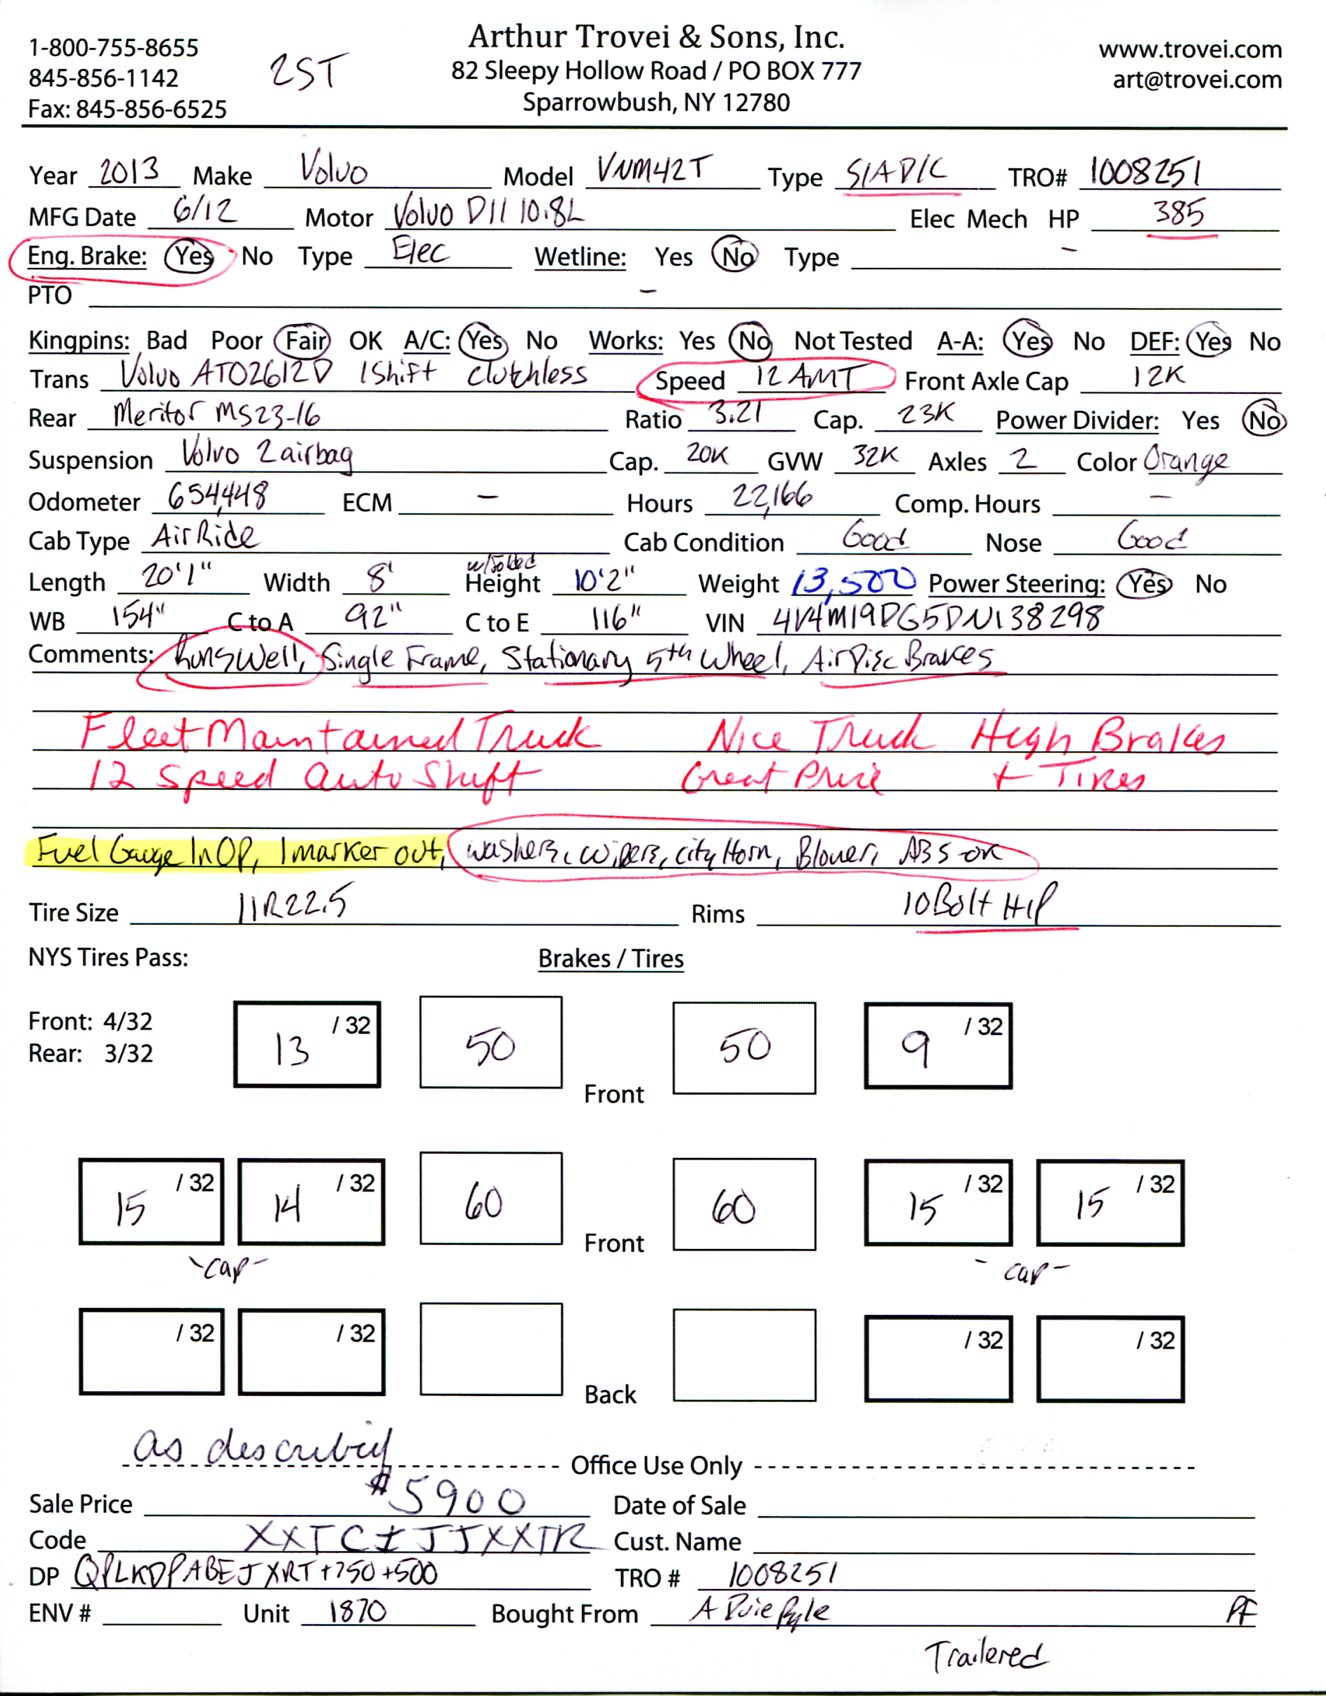 Arthur Trovei & Sons, Inc.
1-800-755-8655 82 Sleepy Hollow Road / PO BOX 777 www.trovei.com
845-856-1142 2ST Sparrowbush, NY 12780 art@trovei.com
Fax: 845-856-6525
Year 2013 Make Volvo Model VNM42T Type S/A D/C TRO# 1008251
MFG Date 6/12 Motor Volvo D11 10.8L Elec Mech HP 385
Eng. Brake: Yes No Type Elec Wetline: Yes No Type -
PTO -
Kingpins: Bad Poor Fair OK A/C: Yes No Works: Yes No Not Tested A-A: Yes No DEF: Yes No
Trans Volvo ATO2612D 1Shift clutchless Speed 12 AMT Front Axle Cap 12K
Rear Meritor MS23-16 Ratio 3.21 Cap. 23K Power Divider: Yes No
Suspension Volvo 2 airbag Cap. 20K GVW 32K Axles 2 Color Orange
Odometer 654,448 ECM - Hours 22,166 Comp. Hours -
Cab Type Air Ride Cab Condition Good Nose Good
Length 20'1" Width 8' Height 10'2" Weight 13,500 Power Steering: Yes No
WB 154" C to A 92" C to E 116" VIN 4V4M19DG5DN138298
Comments: Runs Well, Single Frame, Stationary 5th Wheel, Air Disc Brakes
Fleet Maintained Truck Nice Truck High Brakes
12 Speed Auto Shift Great Price + Tires
Fuel Gauge In OP, 1 marker out, washers, wipers, city Horn, Blower, ABS OK
Tire Size 11R22.5 Rims 10 Bolt H/P
NYS Tires Pass: Brakes / Tires
Front: 4/32 13 /32 50 50 9 /32
Rear: 3/32
Front
15 /32 14 /32 60 60 15 /32 15 /32
Front
-cap- -cap-
/32 /32 /32 /32
Back
as described
Office Use Only
Sale Price $5900 Date of Sale
Code Cust. Name
DP QPLKDPABEJXRT+750+500 TRO # 1008251
ENV # Unit 1870 Bought From A Duie Pyle PF
Trailered